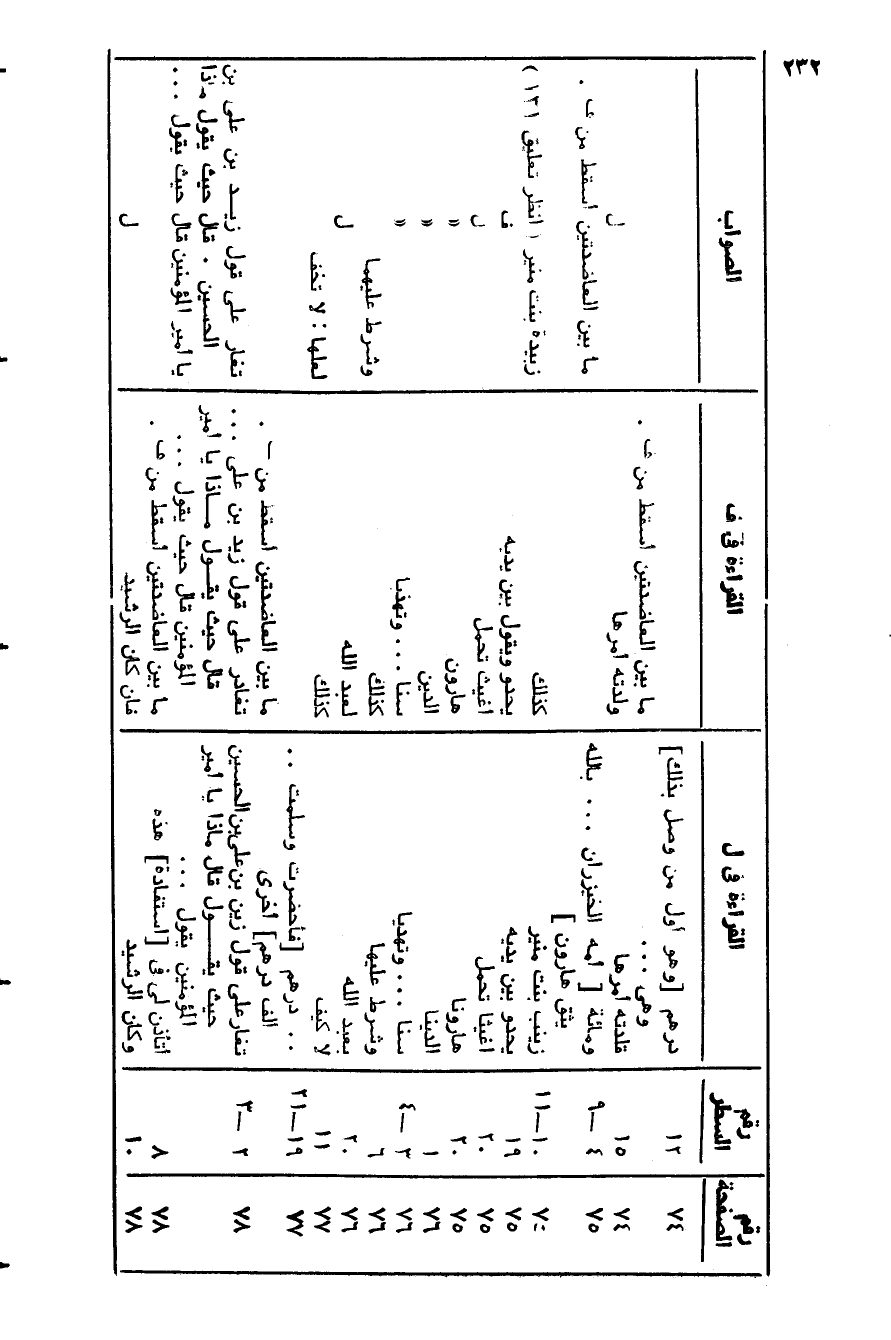 ٢٣٢
رقم الصفحة | رقم السطر | القراءة فى ل | القراءة فى ف | الصواب
٧٤ | ١٢ | درهم [وهو أول من وصل بذلك]
وهى . . .
ما بين العاضدتين أسقط من ف .
٧٤ | ١٥ | قلدته أمرها | ولدته أمرها | ل
٧٥ | ٤ — ٩ | ومائة [ أمه الخيزران . . . بالله
يثق هارون ]
ما بين العاضدتين أسقط من ف .
٧٥ | ١٠—١١ | زينب بنت منير | كذلك | زبيدة بنت منير ( انظر تعليق ١٣١ )
٧٥ | ١٩ | يحدو بين يديه | يحدو ويقول بين يديه | ف
٧٥ | ٢٠ | اغيثا تحمل | اغيث تحمل | ل
٧٥ | ٢٠ | هارونا | هارون | »
٧٦ | ١ | الدينا | الدين | »
٧٦ | ٣ — ٤ | سنا . . . وتهديا | سنا . . . وتهذبا | »
٧٦ | ٦ | وشرط عليها | كذلك | وشرط عليهما
٧٦ | ٢٠ | بعبد الله | لعبد الله | ل
٧٧ | ١١ | لا كيف | كذلك | لعلها : لا تخف
٧٧ | ١٩—٢١ | . . درهم [فأحضرت وسلمت . .
الف درهم] أخرى
ما بين العاضدتين أسقط من ف .
٧٨ | ٢ — ٣ | تغار على قول زين بن على بن الحسين
حيث يقول قال ماذا يا أمير
المؤمنين يقول . . .
تغادر على قول زيد بن على . . .
قال حيث يقول ماذا يا أمير
المؤمنين قال حيث يقول . . .
تغار على قول زيد بن على بن
الحسين . قال حيث يقول ماذا
يا أمير المؤمنين قال حيث يقول . . .
٧٨ | ٨ | أتأذن لى فى [استفادة] هذه | ما بين العاضدتين أسقط من ف .
٧٨ | ١٠ | وكان الرشيد | فان كان الرشيد | ل